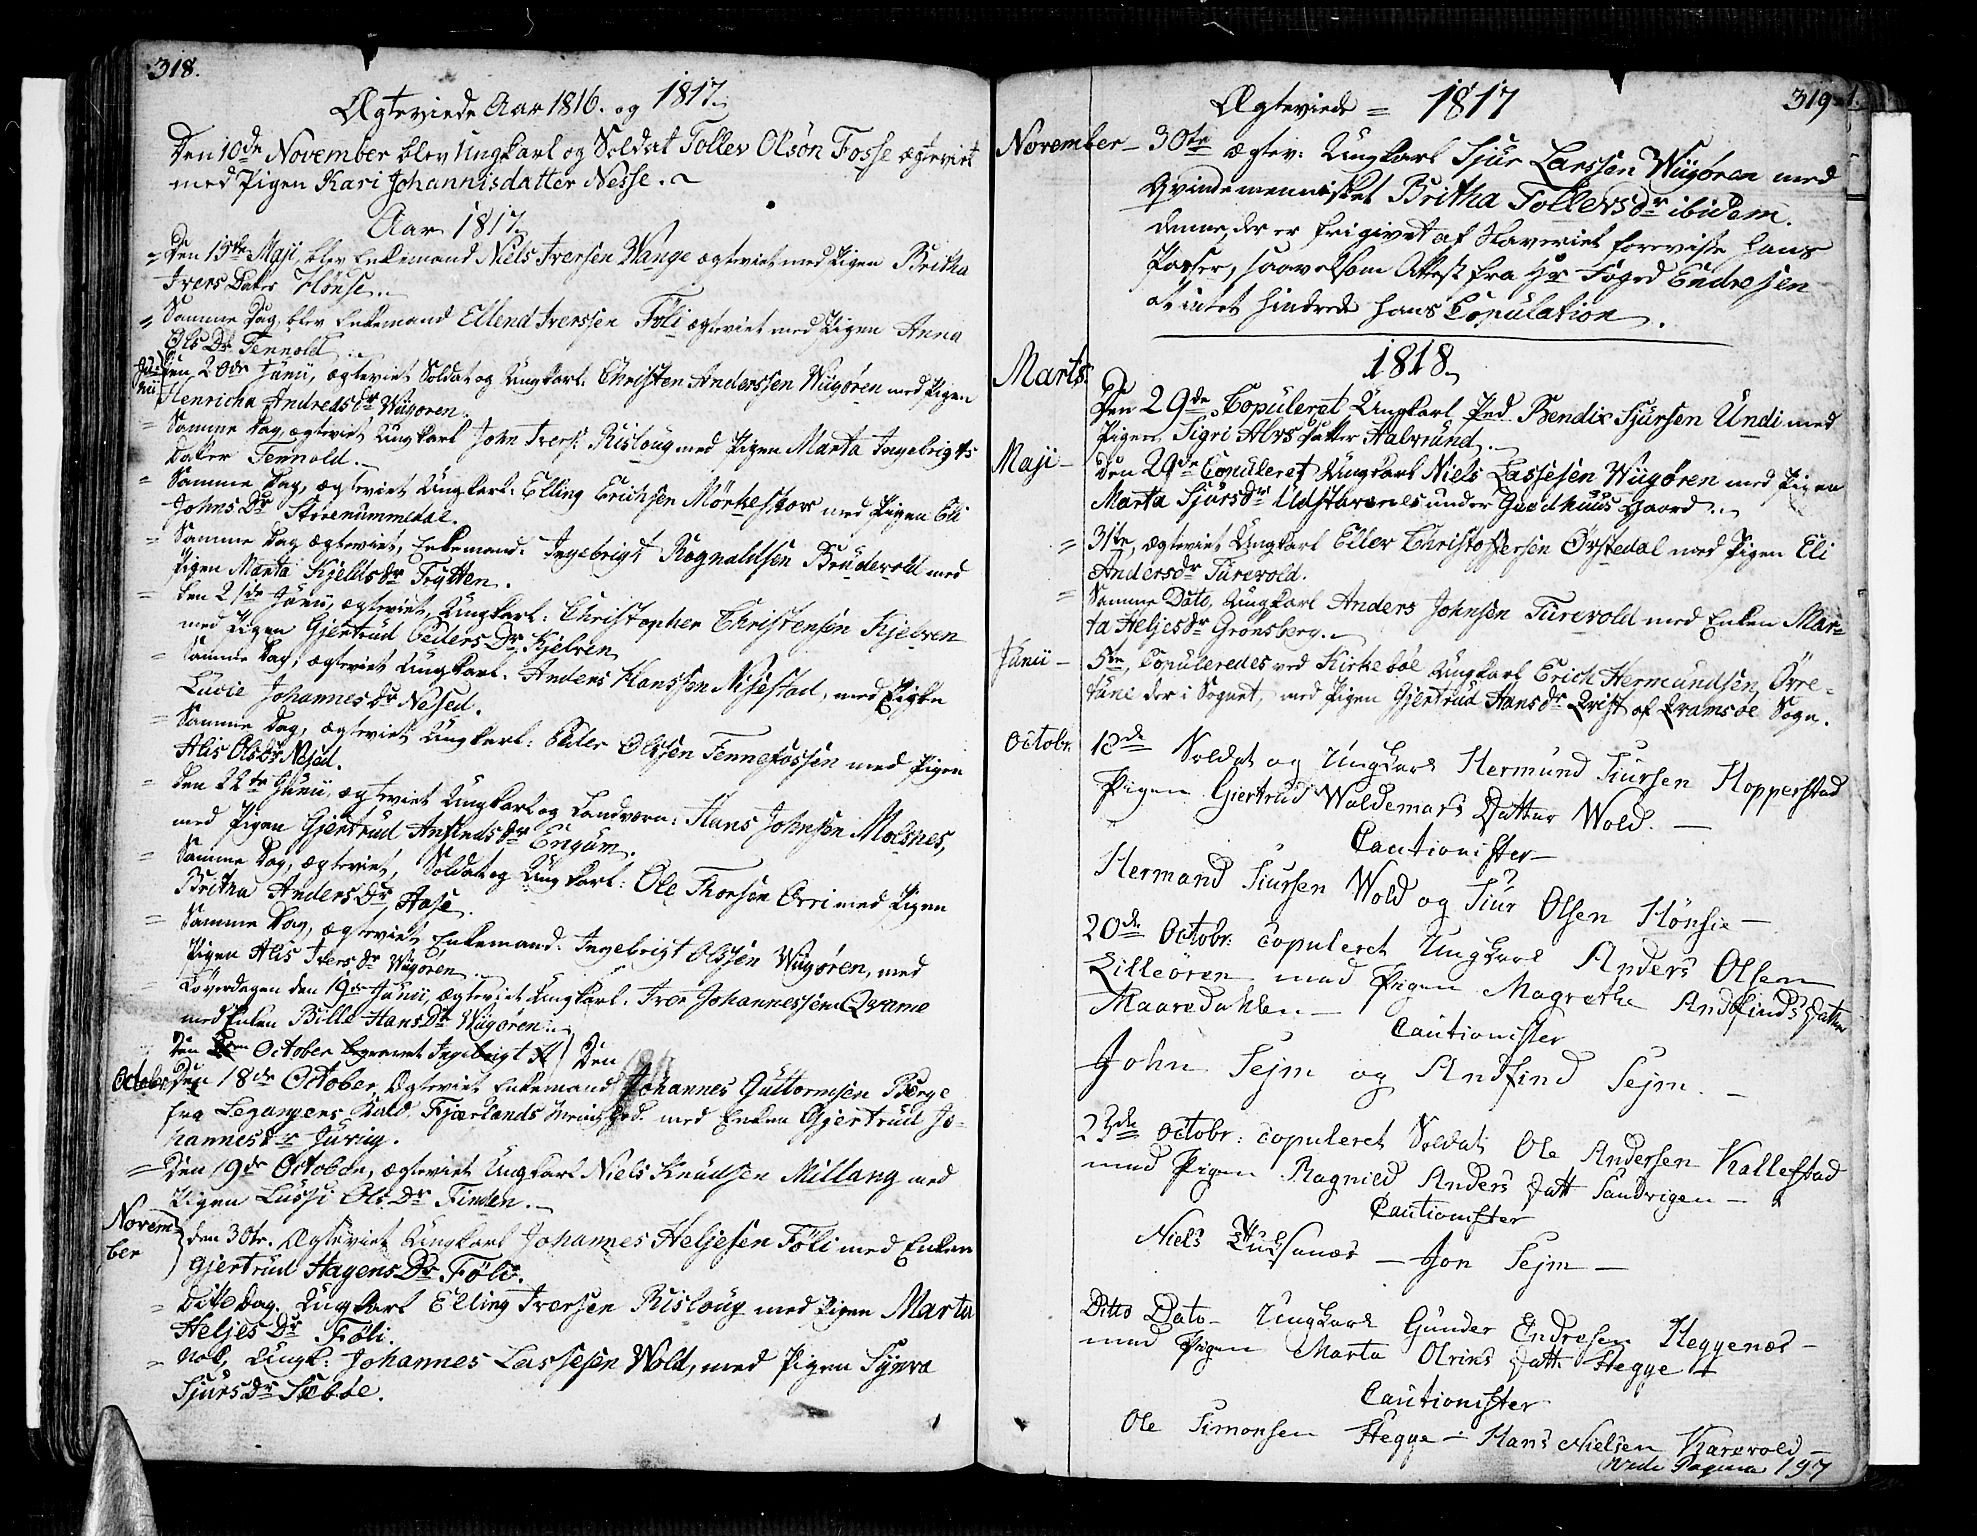 318.
Ægteviede Aar 1816. og 1817.
Den 10de November blev Ungkarl og Soldat Tollev Olsön Fosse ægteviet
med Pigen Kari Johannisdatter Nesse.
Aar 1817.
= Den 15de Maji, blev Enkemand Niels Iversen Wange ægteviet med Pigen Britha
Ivers Datr Hönse.
= Samme Dag, blev Enkemand Ellend Iverssen Föli ægteviet med Pigen Anna
Ols Dr Tennold.
Ju-
nii
Den 20de Junii, ægteviet Soldat og Ungkarl: Christen Anderssen Wiigören med Pigen
Henricha Andreasdr Wiigoren.
= Samme Dag, ægteviet Ungkarl John Ivers: Risloug med Pigen Marta Ingebrigts
datter Tennold.
= Samme Dag, ægteviet Ungkarl: Elling Erichsen Mörkeskov med Pigen Eli
Johns Dr Storenummedal.
= Samme Dag ægteviet, Enkemand: Ingebrigt Rognaldsen Brudevold med
Pigen Marta Kjeldsdr Frytten.
= Den 21de Junii, ægteviet, Ungkarl: Christopher Christensen Kjelven
med Pigen Gjertrud PedersDr Kjelven
= Samme Dag, ægteviet Ungkarl. Anders Hanssen Nisestad, med Pigen
Lucie Johannesdr Nesed.
= Samme Dag, ægteviet Ungkarl: Peder Olssen Tennefossen med Pigen
Alis Olsdr Nesed.
= Den 22de Junii, ægteviet Ungkarl og Landværn: Hans Johnsen Molsnes,
med Pigen Gjertrud Anfindsdr Engum.
= Samme Dag, ægteviet, Soldat og Ungkarl: Ole Thorsen Orri med Pigen
Britha AndersDr Hase.
= Samme Dag, ægteviet Enkemand: Ingebrigt Olssen Wiigören, med
Pigen Alis Iversdr Wiigören
= Löverdagen den 19de Junii, ægteviet Ungkarl. Iver Johannessen Qvame
med Enken Bille HansDtr Wiigören.
Den October begravet Ingebrigt H Den
October
Den 18de October, Ægteviet Enkemand Johannes Guttormsen Berge
fra Leganger Kald, Fjærlands med Enken Gjertrud Jo-
hannesdr Juving.
= Den 19de October, ægteviet Ungkarl Niels Knudsen Millang med
Pigen Lussi OlsDr Finden.
Novem-
ber
den 30te. Ægteviet Ungkarl Johannes Heljesen Föli med Enken
Gjertrud HagensDr Föli.
= Ditto Dag. Ungkarl Elling Iversen Risloug med Pigen Marta
HeljesDr Föli.
= Nok, Ungk: Johannes Lassesen Wold, med Pigen Synva
Sjursdr Sæbde.
Ægteviede = 1817
319
November – 30te ægtev: Ungkarl Sjur Larssen Wiigören med
Qvindemennisket Britha Tollevsdr ibidem.
denne, der er frigivet af Slaveriet foreviiste hans
Passer, saavelsom Attest fra Hr Foged Endresen
at intet hindrede hans Copulation.
1818
Marts.
Den 29de, Copuleret Ungkarl, Ped. Bendix Sjursen Undi med
Pigen Sigri Alvsdatter Halvrund.
Maji – Den 29de Copuleret Ungkarl Niels Lassesen Wiigören med Pigen
Marta Sjursdr Udstarænes under Guudhuus Gaard.
= 31te, ægteviet Ungkarl Eller Christophersen Ørstedal med Pigen Eli
Andersdr Turevold.
= Samme Dato, Ungkarl Anders Johnsen Turevold med Enken Mar=
ta Heljesdr Grönsberg.
Junii – 5te, Copuleredes ved Kirkeböe Ungkarl Erich Hermundsen Övre-
tune der i Sognet, med Pigen Gjertrud Hansdr Qvist af Qvamsöe Sogn.
Octobr. 18de Soldat og Ungkarl Hermund Siursen Hopperstad
Pigen Giertrud Woldemars Datter Wold. –
Cautionister –
Hermand Siursen Wold og Siur Olsen Hönsie –
20de Octobr: Copuleret Ungkarl Anders Olsen
Lilleören med Pigen Magrethe Andfinds Datter
Maaredahlen. –
Cautionister
John Sejm og Andfind Sejm. –
23de Octobr: Copuleret Soldat Ole Andersen Kallestad
med Pigen Ragnild Anders Datt Sandvigen –
Cautionister
Niels – Jon Sejm –
Ditto Dato – Ungkarl Gunder Endresen Heggenæs –
med Pigen Marta Olrins Datt. Hegge
Cautionister
Ole Simonsen Hegge – Hans Nielsen Karevold –
Vide Pagina 197